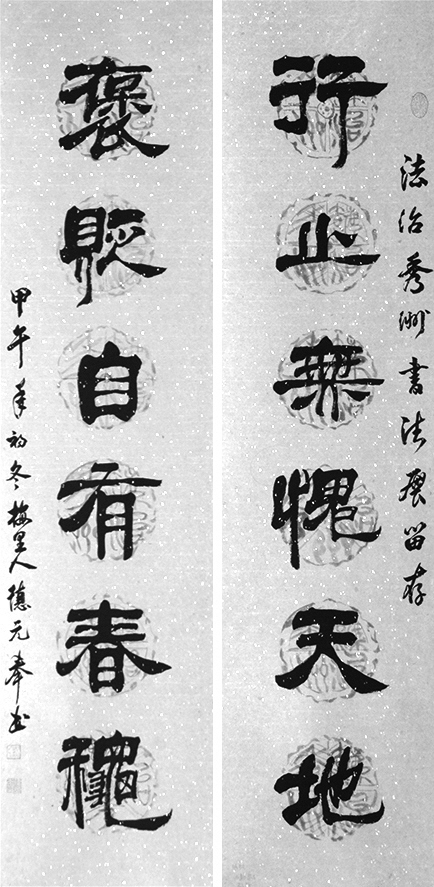 法治秀洲書法展留存
行止無愧天地
褒貶自有春穐
甲午年初冬梅里人德元奉书